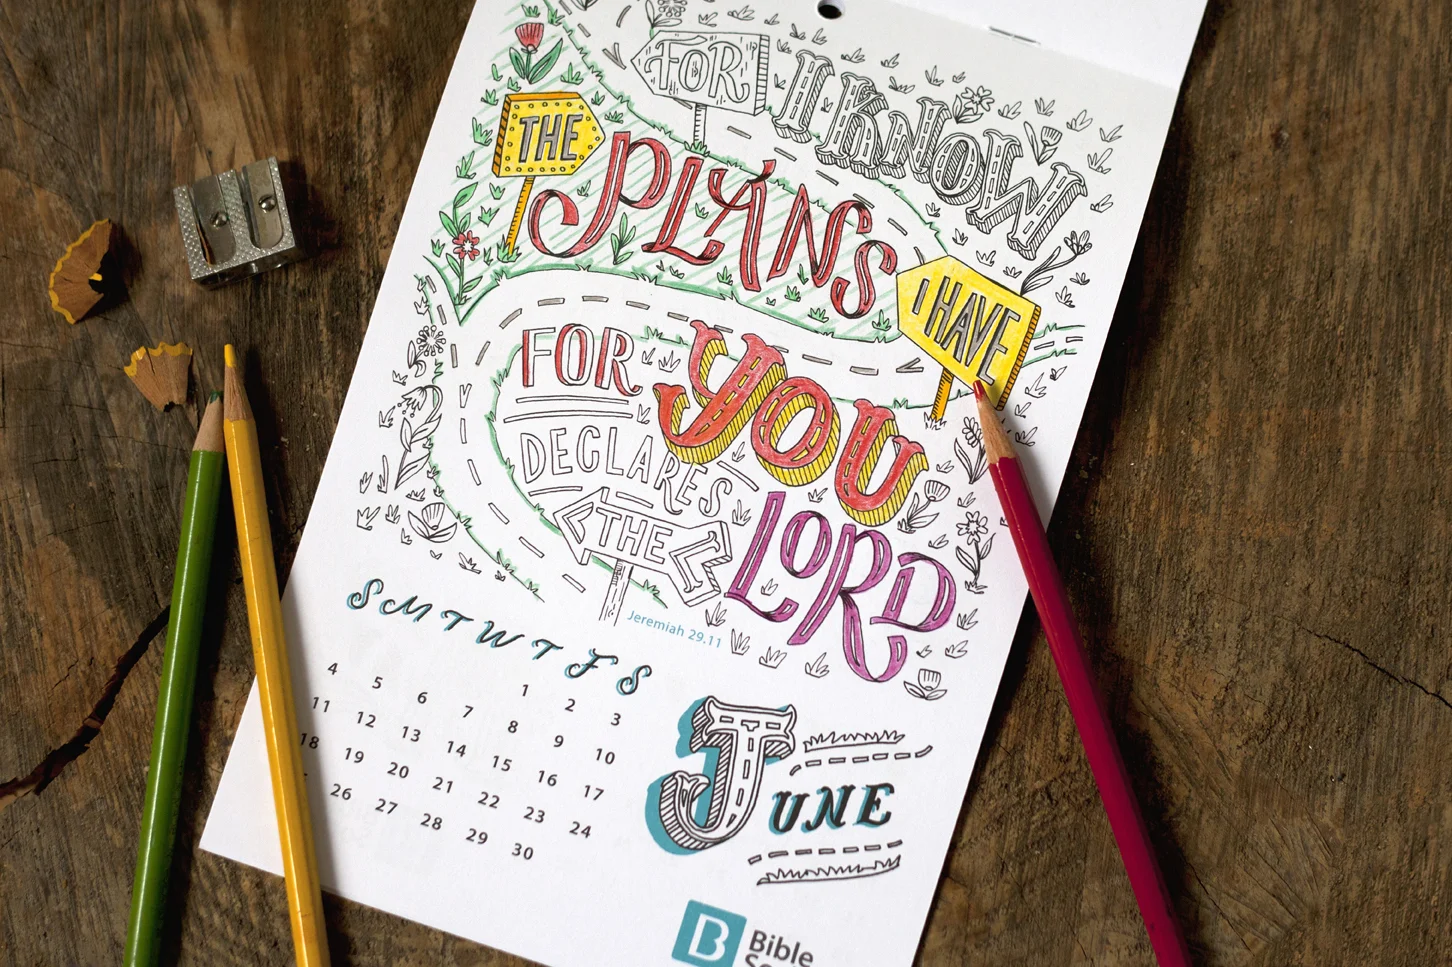 FOR I KNOW
THE PLANS
I HAVE
FOR YOU
DECLARES
THE LORD
Jeremiah 29.11
S M T W T F S
1 2 3
4 5 6 7 8 9 10
11 12 13 14 15 16 17
18 19 20 21 22 23 24
26 27 28 29 30
JUNE
B Bible